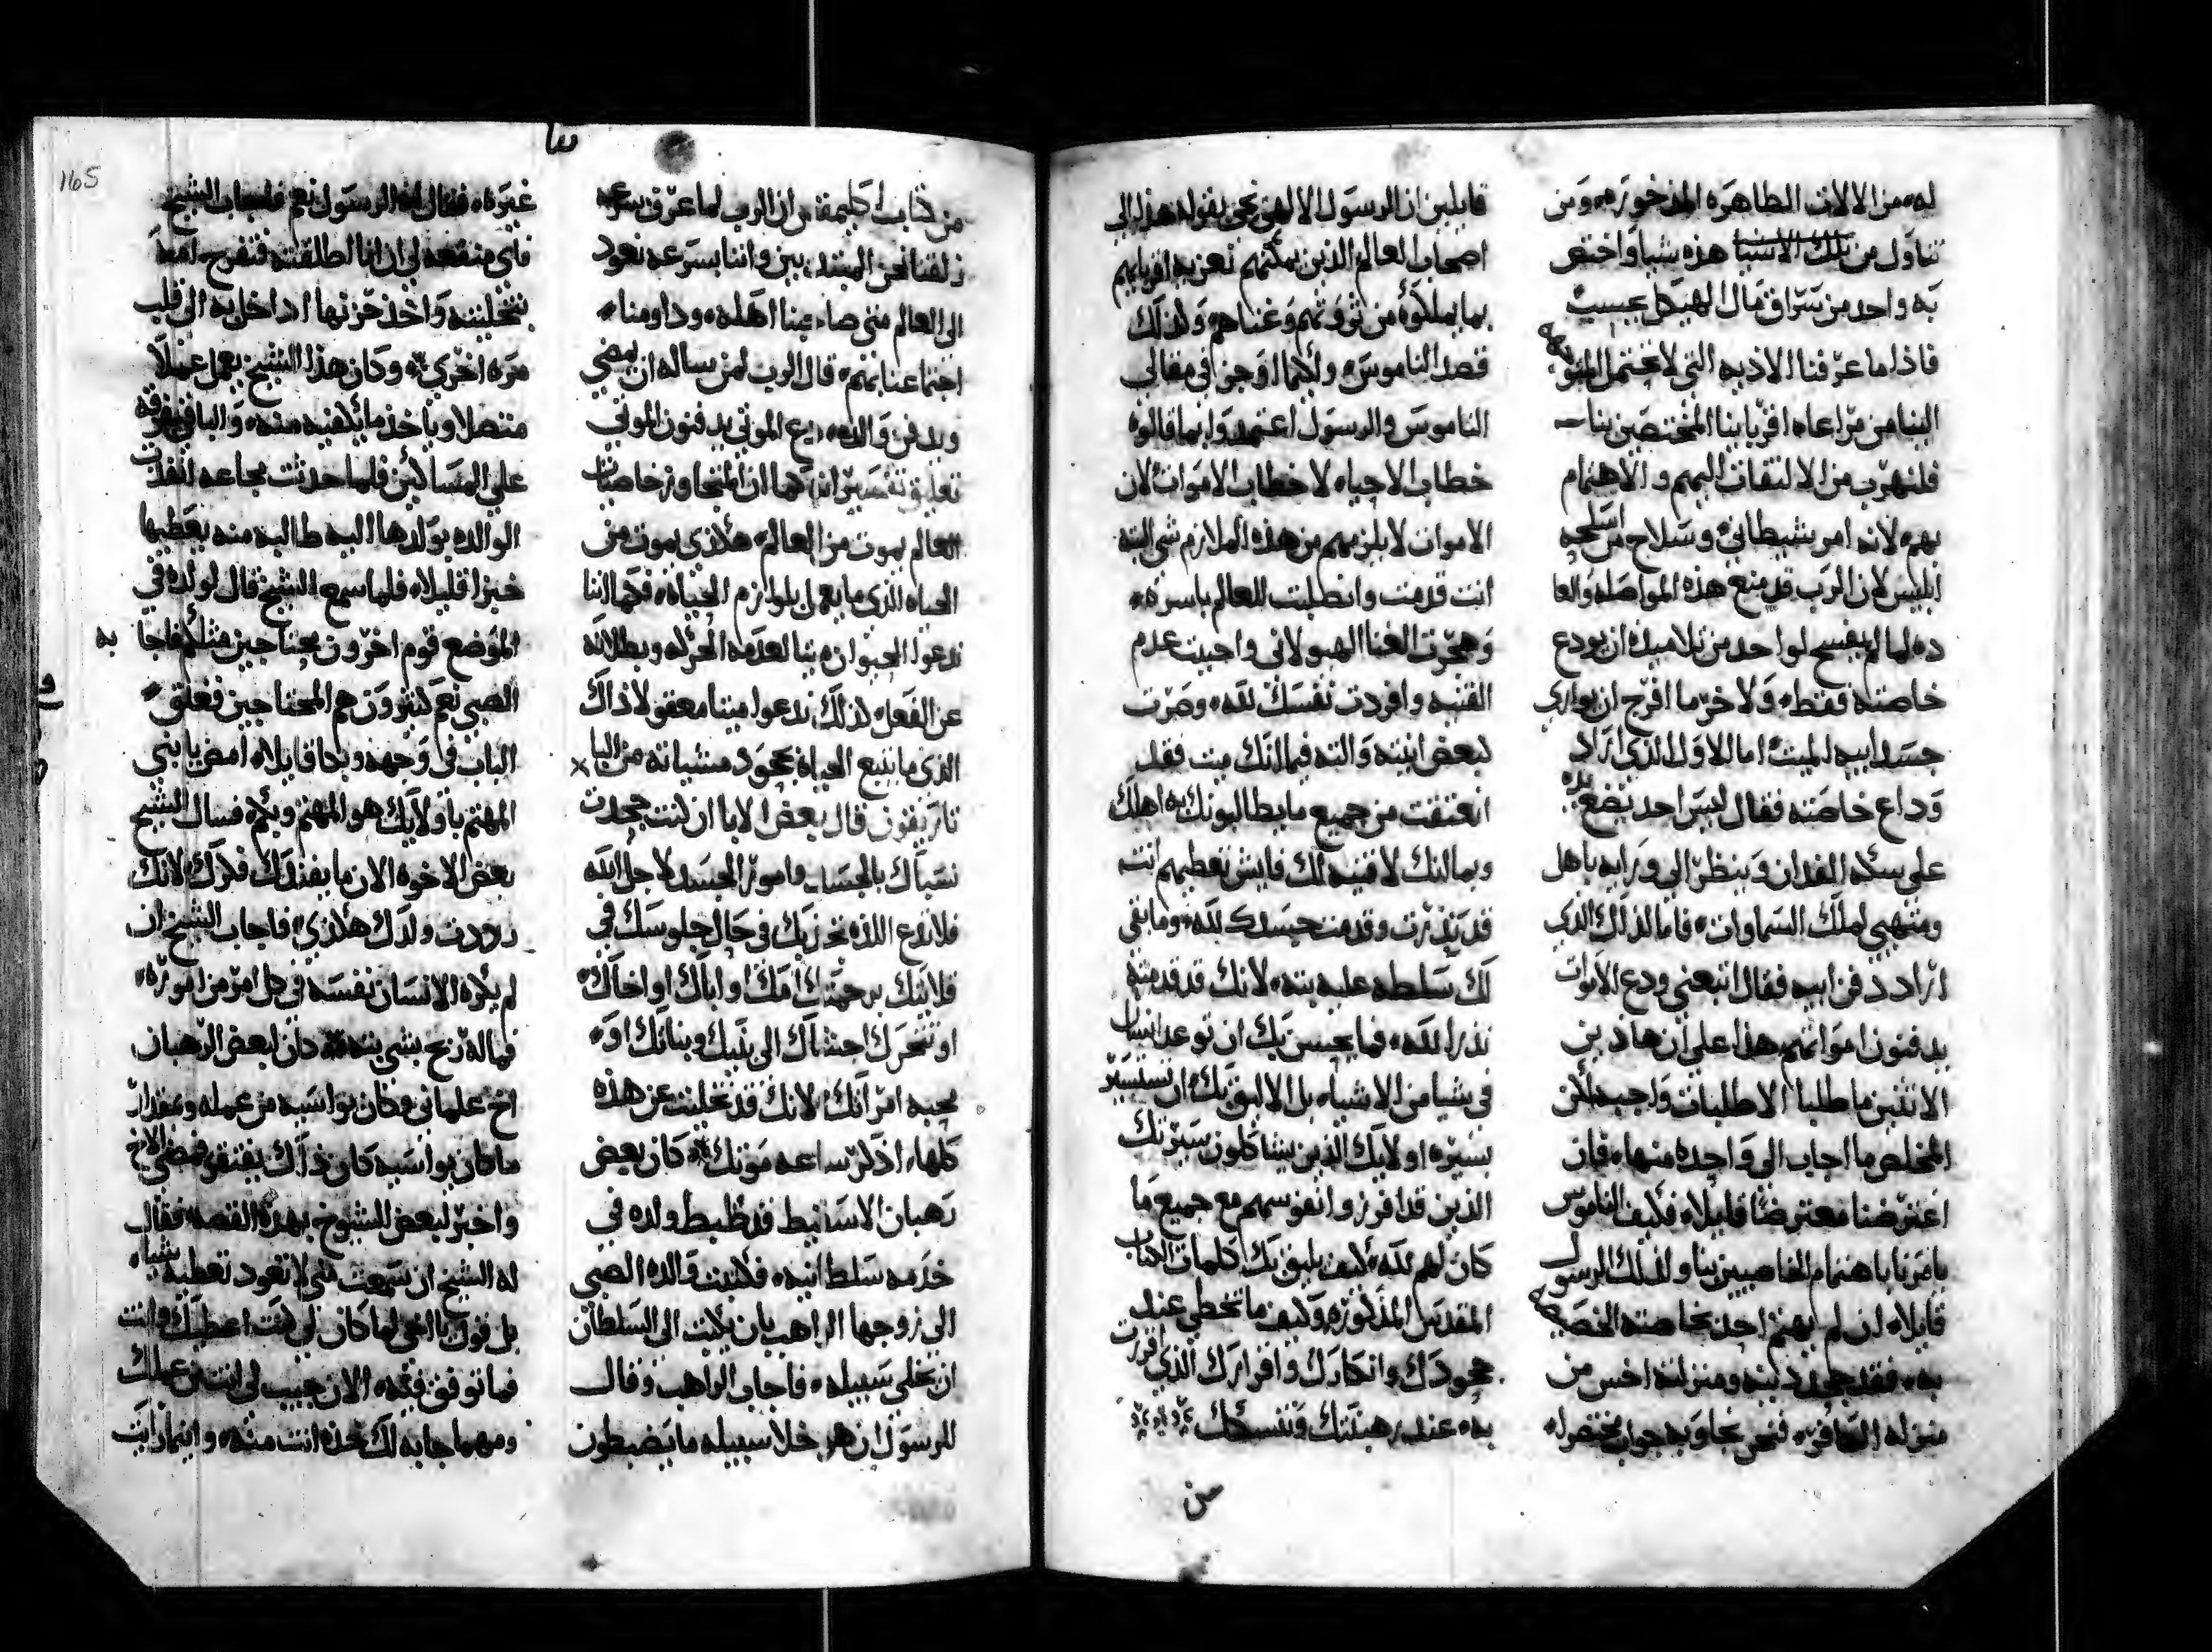 له من الالات الطاهره المذخوره ومن
تناول من تلك الاشيا هذه شيا واختص
به واحد من سراق مال الهيكل بحسب
فاذا ما عرفنا الاذيه التي لا تحتمل
الينا من مراعاه اقربابنا المختصين بنا
فلنهرب من الالتفات اليهم والاهتمام
بهم لانه امر شيطاني وسلاح من اسلحه
ابليس لان الرب قد منع هذه المواصله والعا
ده لما لم يفسح لواحد من تلاميذه ان يودع
خاصته فقط ولا خر ما افرج ان يواري
جسد ابيه الميت اما الاول الذي اراد
وداع خاصته فقال ليس احد يضع يده
على سكه الفدان وينظر الى ورايه ياهل
ومتهي لملك السماوات فاما لذلك الذي
اراد دفن ابيه فقال اتبعني ودع الاموات
يدفنون امواتهم هذا على ان هاذين
الاثنين ما طلبا الا طلبات واجبه لكن
المخلص ما اجاب الى واحده منها فان
اعترضنا معترضا قايلا فكيف الناموس
يامرنا باهتمام الخاصيين بنا ولذلك الرسول
قايلا ان لم يهتم احد بخاصته الخصيصه
به فقد جحد دينه ومنزلته اخس من
منزله الكافر فنحن نجاوبه جواب مختصر له
قايلين ان الرسول الالهي نحى بقوله هذا الى
اصحاب العالم الذين يمكنهم تعزيه اقربايهم
بما يملكوه من ثروتهم وغناهم وكذلك
قصد الناموس ولكيما اوجز في مقالي
الناموس والرسول اعتمدوا بما قالوه
خطاب الاحياء لا خطاب الاموات لان
الاموات لا يلزمهم من هذه الملازم شي البته
انت قدمت وانصلبت للعالم باسره
وهجرت الغنا الهيولاني واحببت عدم
القنيه وافردت نفسك لله وصرت
لبعض ابنته والته فيما انك ميت فقد
انعتقت من جميع ما يطالبونك به اهلك
وبما انك لا قنيه لك فايش تعطيهم انت
قد نذرت وقدمت جسدك لله وما بقي
لك سلطه عليه بته لانك قد قدمته
نذرا لله فما يحسن بك ان توعد انسان
في شيا من الاشياء بل الاليق بك ان تستسير
بسيره اولايك الذين يشاكلون سيرتك
الذين قد افرزوا نفوسهم مع جميع ما
كان لهم لله كيف يليق بك كلمات الكتاب
المقدس المذكوره وكيف ما تخطي عند
جحودك وانكارك واقرارك الذي اقررت
به عند رهبنتك وتنسكك
من
من كتاب اكليمقس ان الرب لما عرف بسرعه
زلقنا نحن المبتديين واننا بسرعه نعود
الى العالم متى صاحبنا اهله وداومنا
اجتماعنا بهم قال الرب لمن ساله ان يمضي
ويدفن والده دع الموتى يدفنون الموتى
تعليق تفسير انه كما ان المتجاوز خاصيات
العالم يموت من العالم هكذي يموت من
الحياه الذي ما يعمل بلوازم الحياه فكما اننا
ندعوا الحيوان ميتا لعدمه الحركه وبطلانه
عن الفعل كذلك ندعوا ميتا معقولا ذاك
الذي ما يتبع الحياه بجحود مشياته من البا
تاريقون قال بعض الابا ان كنت جحدت
نسباك بالجسد وامور الجسد لاجل الله
فلا تدع اللذه تحزبك في حال جلوسك في
قلايتك برحمتك امك او اباك او اخاك
او تتحرك احشاك الى بنيك وبناتك او
محبه امراتك لانك قد تخليت عن هذه
كلها اذكر ساعه موتك كان بعض
رهبان الاسقيط قد ظبط ولده في
خدمه سلطانيه فكتبت والده الصبي
الى زوجها الراهب بان يكتب الى السلطان
ان يخلي سبيله فاجاب الراهب وقال
للرسول ان هو خلا سبيله ما يضبطون
165
غيره فقال له الرسول نعم فاجاب الشيخ
فاي منفعه لي ان انا اطلقته فتفرح امه
بتخليته واخذ حزنها ادخل به الى قلب
مره اخرى وكان هذا الشيخ يعمل عملا
متصلا وياخذ ما يكفيه منه والباقي يفرقه
على المساكين فلما حدثت مجاعه انفذت
الوالده بولدها اليه طالبه منه يعطيها
خبزا قليلا فلما سمع الشيخ قال لولده في
الموضع قوم اخرون محتاجين مثلكم فاجابه
الصبي نعم كثيرون هم المحتاجين فغلق
الباب في وجهه وبكا قايلا امض يا بني
المهتم باولايك هو المهتم وبكم فسال الشيخ
بعض الاخوه الان ما يفندك فكرك لانك
رددت ولدك هكذي فاجاب الشيخ ان
لم يكره الانسان نفسه في كل امر من اموره
فما له ربح بشي بته كان لبعض الرهبان
اخ علماني وكان يواسيه من عمله ومقدار
ما كان يواسيه كان ذاك يفتقر فمضى الاخ
واخبر لبعض الشيوخ بهذه القصه فقال
له الشيخ ان سمعت مني لا تعود تعطيه شياء
بل قول يا اخي لما كان لي كنت اعطيك وانت
فما توفق فقه الان جيب لي انت من عملك
ومهما جابه لك خذه انت منه واينما رايت